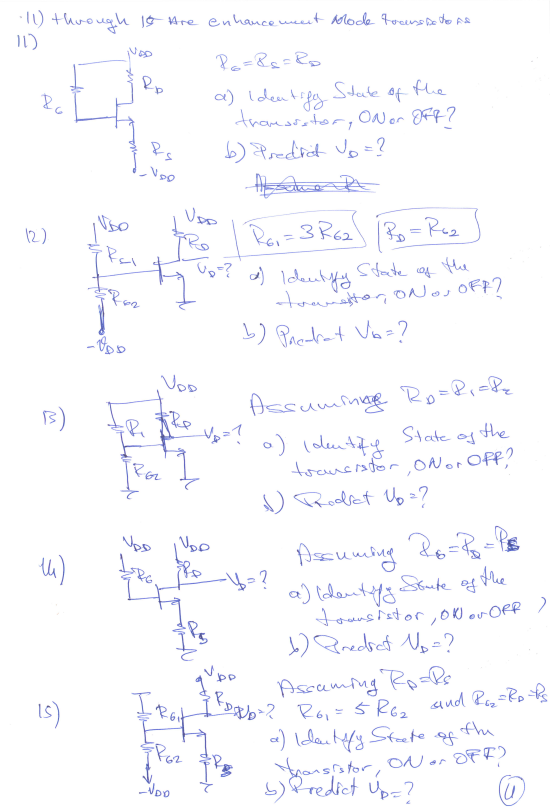 11) through 15 Are enhancement Mode transistors
11)
VDD
RD
RG
RS
-VDD
RG=RS=RD
a) Identify State of the
transistor, ON or OFF?
b) Predict VD=?
12)
VDD
VDD
RG1
RD
RG2
VD=?
-VDD
RG1=3RG2
RD=RG2
a) Identify State of the
transistor, ON or OFF?
b) Predict VD=?
13)
VDD
R1
RD
VD=?
RG2
Assuming RD=R1=R2
a) Identify State of the
transistor, ON or OFF?
b) Predict VD=?
14)
VDD
VDD
RG
RD
VD=?
RS
Assuming RG=RD=RS
a) Identify State of the
transistor, ON or OFF?
b) Predict VD=?
15)
VDD
RD
RG1
VD=?
RG2
RS
-VDD
Assuming RD=RS
RG1=5RG2 and RG2=RD=RS
a) Identify State of the
transistor, ON or OFF?
b) Predict VD=?
4